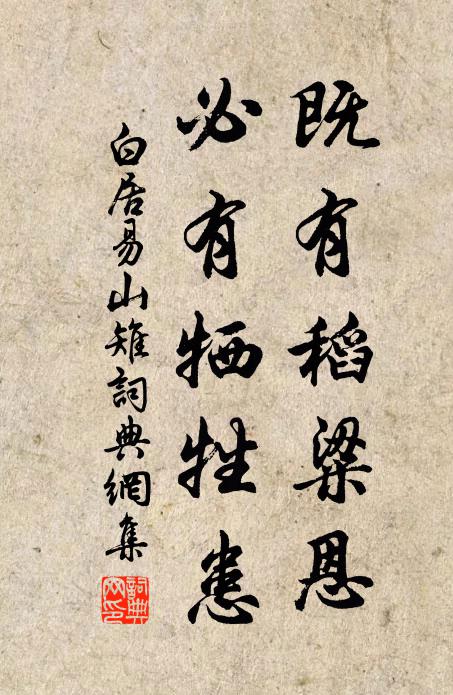 既有稻粱恩
必有牺牲患
白居易山雉詞典網集
詞典网印